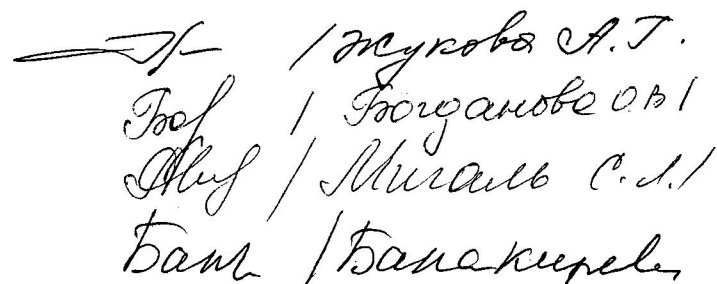 / Жукова А.Г.
/ Богданова О.В/
/ Мигаль С.Л./
/ Балакирев